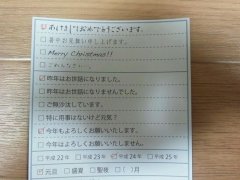 ☑ あけましておめでとうございます。
□ 暑中お見舞い申し上げます。
□ Merry Christmas!!
□ ごめんなさい。
☑ 昨年はお世話になりました。
□ 昨年はお世話になりませんでした。
□ ご無沙汰しています。
□ 特に用事はないけど元気?
☑ 今年もよろしくお願いいたします。
□ 今年もよろしくお願いしません。
□ 平成22年 □ 平成23年 ☑ 平成24年 □ 平成25年
☑ 元旦 □ 盛夏 □ 聖夜 □ ( )月